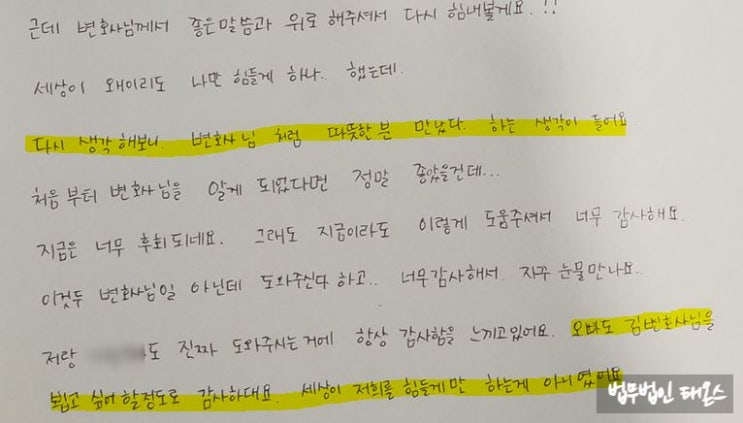 근데 변호사님께서 좋은말씀과 위로 해주셔서 다시 힘내볼게요.!!
세상이 왜이리도 나만 힘들게 하나.. 했는데.
다시 생각해보니. 변호사님 처럼 따뜻한분 만났다. 하는 생각이 들어요
처음부터 변호사님을 알게 되었다면 정말 좋았을건데...
지금은 너무 후회되네요. 그래도 지금이라도 이렇게 도움주셔서 너무 감사해요.
이것두 변호사님일 아닌데 도와주신다 하고.. 너무감사해서 자꾸 눈물만나요..
저랑 도 진짜 도와주시는거에 항상 감사함을 느끼고있어요. 오빠도 김변호사님을
뵙고 싶어 할정도로 감사하대요. 세상이 저희를 힘들게만 하는게 아니였어요
법무법인 태온스